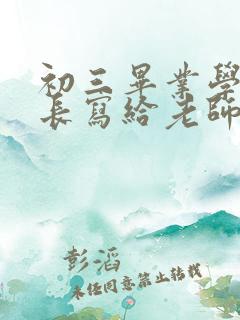 初三畢業學
長寫給老師
彭滔
未经同意禁止转载